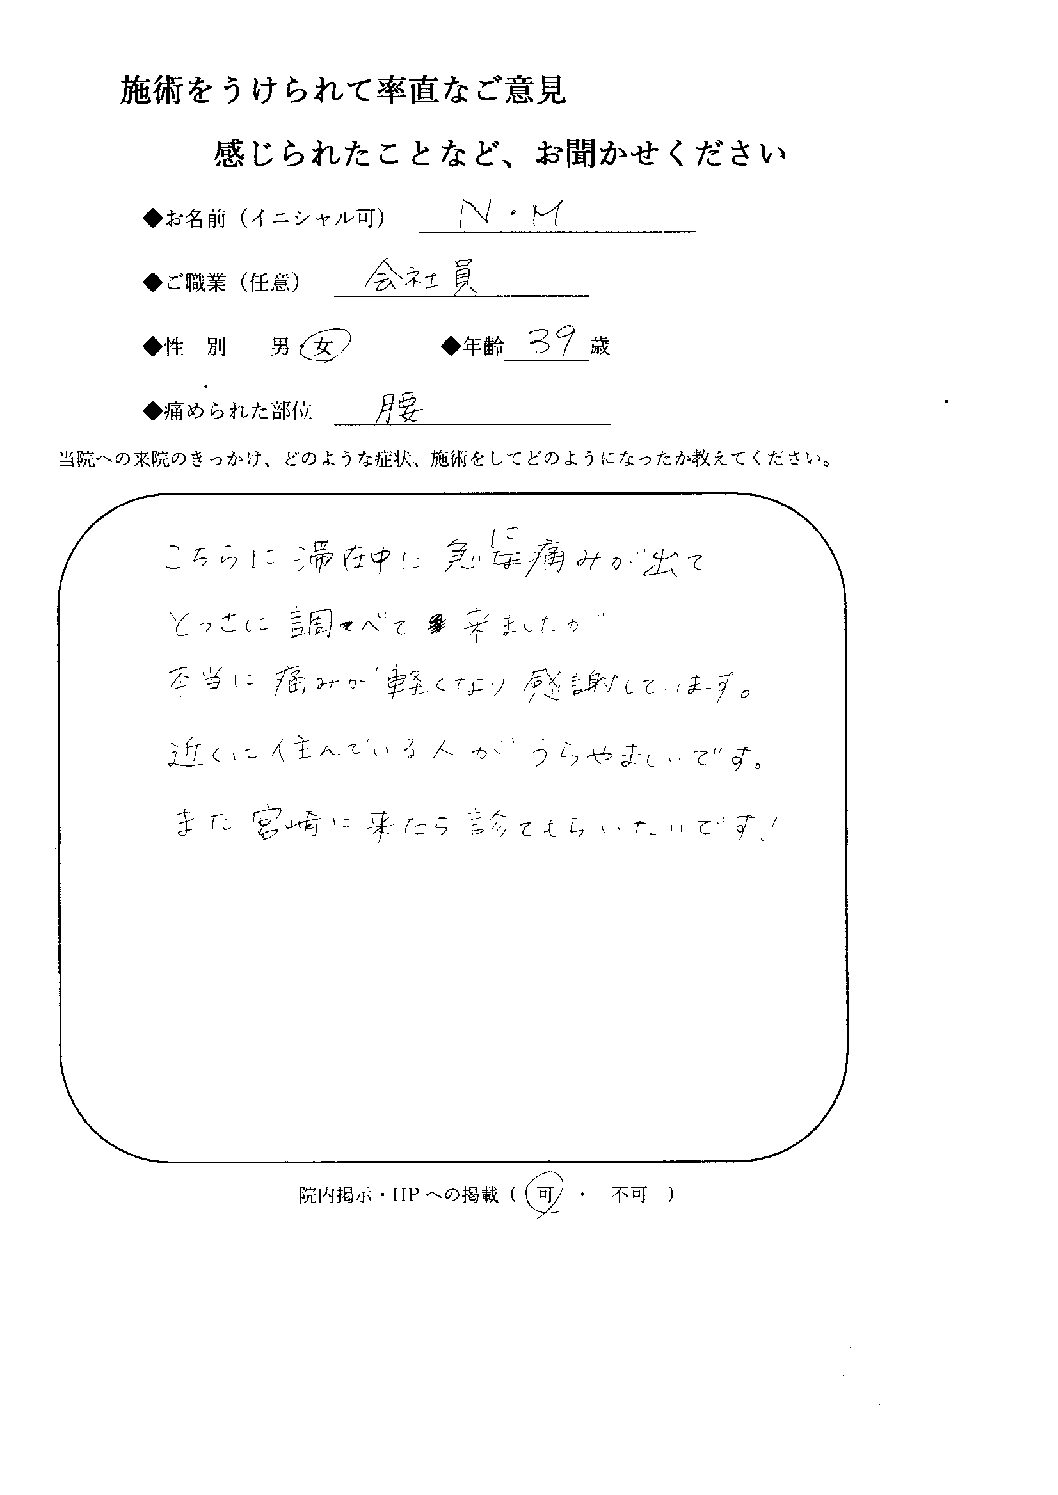 施術をうけられて率直なご意見
感じられたことなど、お聞かせください
◆お名前（イニシャル可） N・M
◆ご職業（任意） 会社員
◆性 別 男 女 ◆年齢 39 歳
◆痛められた部位 腰
当院への来院のきっかけ、どのような症状、施術をしてどのようになったか教えてください。
こちらに滞在中に急に痛みが出て
とっさに調べて来ましたが
本当に痛みが軽くなり感謝しています。
近くに住んでいる人がうらやましいです。
また宮崎に来たら診てもらいたいです!
院内掲示・HPへの掲載（ 可 ・ 不可 ）